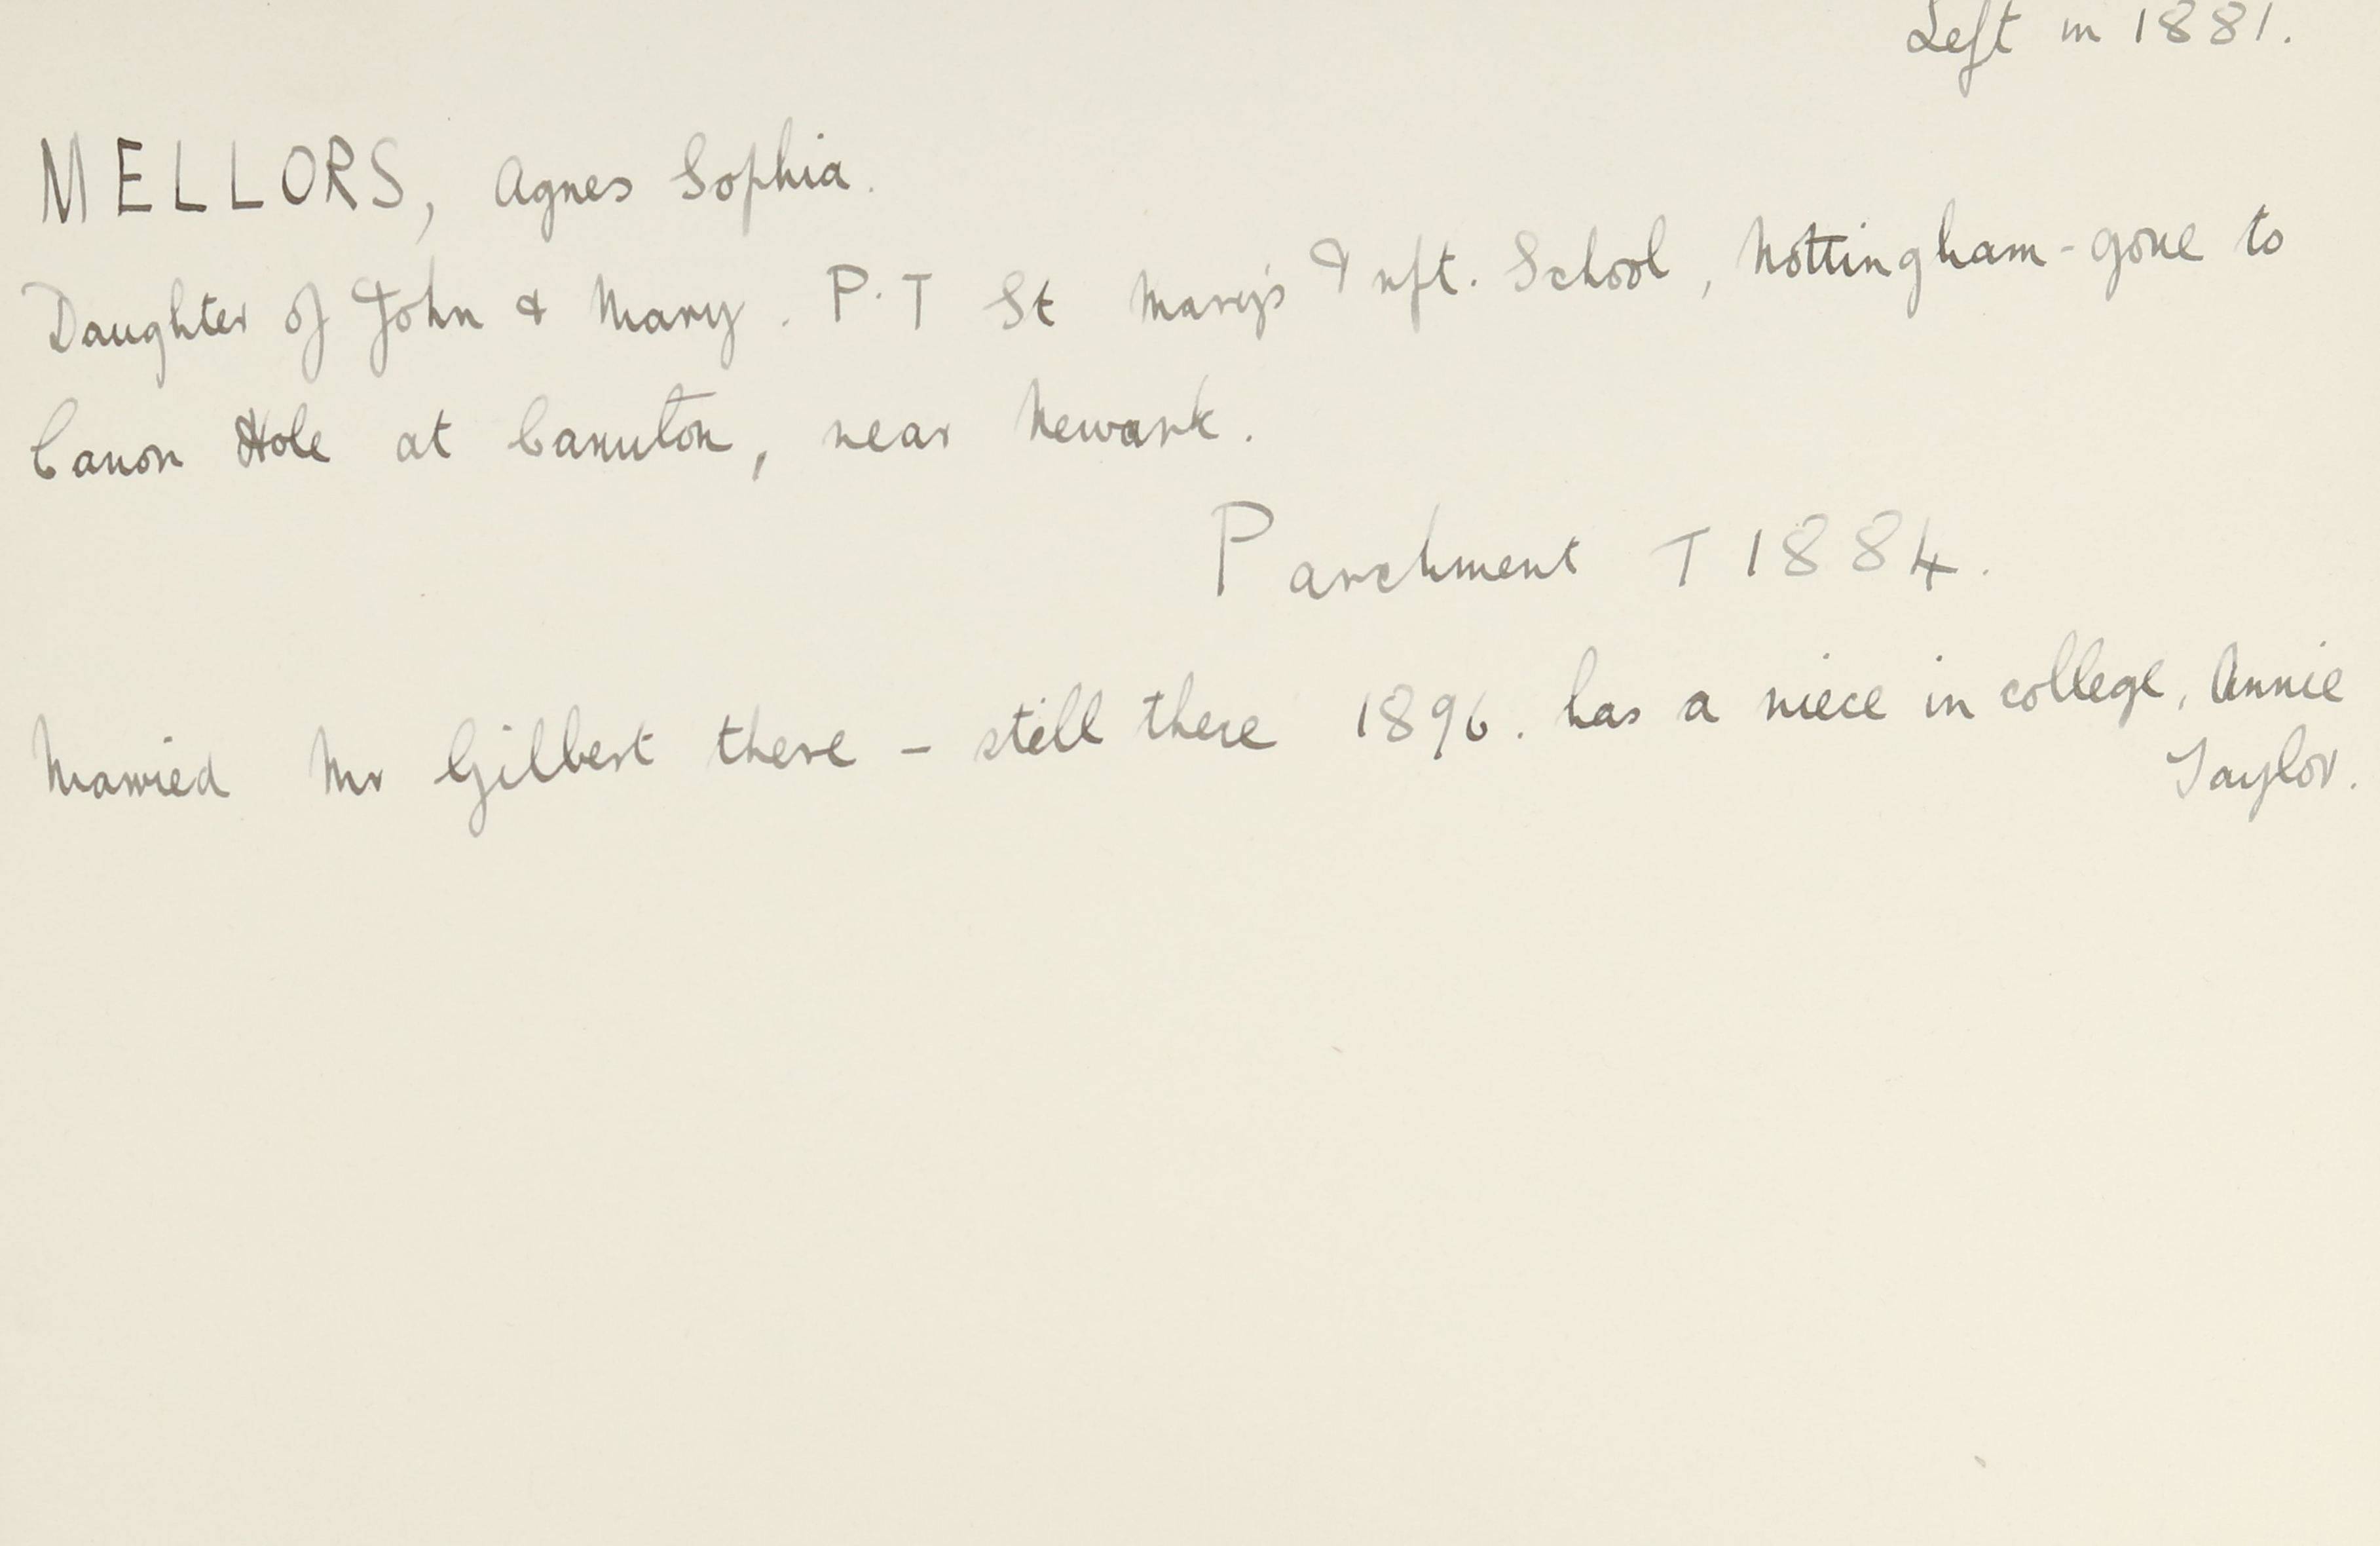 Left in 1881.
MELLORS, Agnes Sophia.
Daughter of John & Mary. P.T St Mary's Inft. School, Nottingham - gone to
Canon Hole at Caunton, near Newark.
Parchment T 1884.
Married Mr Gilbert there - still there 1896. has a niece in college, Annie
Taylor.